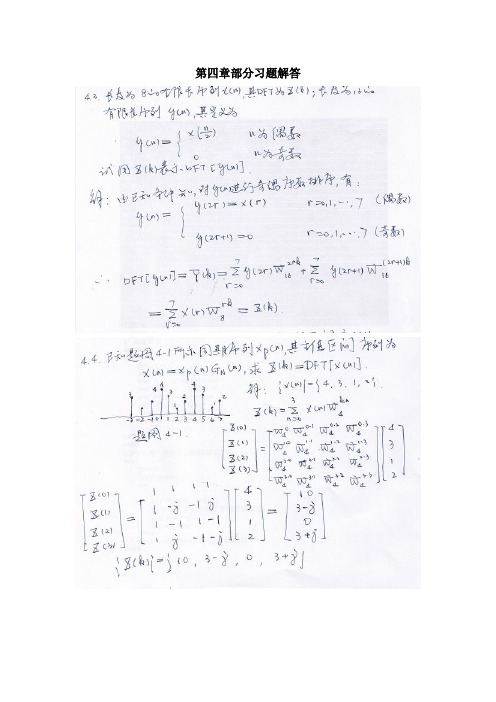 第四章部分习题解答
4.3. 长度为8的有限长序列x(n),其DFT为X(k);长度为16的
有限长序列 y(n),其定义为
y(n)= { x(n/2) n为偶数
0 n为奇数
试用X(k)表示DFT[y(n)].
解: 由已知条件知,对y(n)进行奇偶序数排序,有:
y(n)= { y(2r)=x(r) r=0,1,…,7 (偶数)
y(2r+1)=0 r=0,1,…,7 (奇数)
∴ DFT[y(n)]=Y(k)=∑_{r=0}^{7} y(2r)W_16^{2rk}+∑_{r=0}^{7} y(2r+1)W_16^{(2r+1)k}
=∑_{r=0}^{7} x(r)W_8^{rk} = X(k).
4.4. 已知题图4-1所示周期序列x_p(n),其主值区间序列为
x(n)=x_p(n)G_N(n),求X(k)=DFT[x(n)].
解: {x(n)}={4,3,1,2}.
X(k)=∑_{n=0}^{3} x(n)W_4^{kn}
-3 -2 -1 0 1 2 3 4 5 6 7
题图4-1.
[X(0) X(1) X(2) X(3)] = [W_4^0 W_4^{0·1} W_4^{0·2} W_4^{0·3} W_4^{1·0} W_4^{1·1} W_4^{1·2} W_4^{1·3} W_4^{2·0} W_4^{2·1} W_4^{2·2} W_4^{2·3} W_4^{3·0} W_4^{3·1} W_4^{3·2} W_4^{3·3}] [4 3 1 2]
[X(0) X(1) X(2) X(3)] = [1 1 1 1 1 -j -1 j 1 -1 1 -1 1 j -1 -j] [4 3 1 2] = [10 3-j 0 3+j]
{X(k)}={10, 3-j, 0, 3+j}